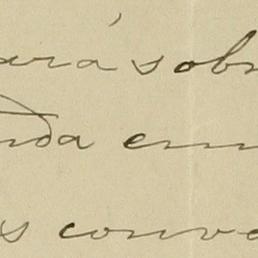 ará sob
nda em
s conv